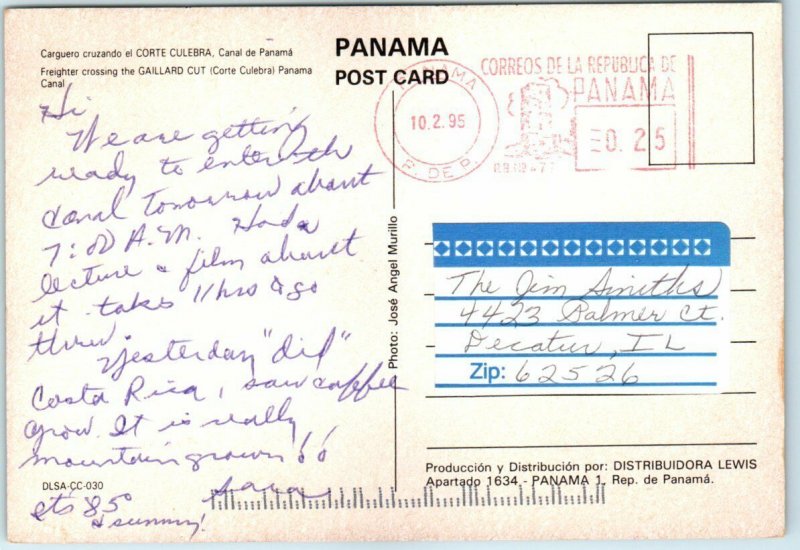 Carguero cruzando el CORTE CULEBRA, Canal de Panamá
Freighter crossing the GAILLARD CUT (Corte Culebra) Panama
Canal
PANAMA
POST CARD
Hi
We are getting
ready to enter the
Canal Tomorrow about
7:00 A.M. Had a
lecture & film about
it takes 11 hrs to go
threw
Yesterday "did"
Costa Rica, saw coffee
grow. It is really
mountain grown !!
Sara
its 85°
& sunny!
DLSA-CC-030
Photo: José Angel Murillo
PANAMA
10.2.95
P. DE P.
CORREOS DE LA REPUBLICA DE
PANAMA
0.25
The Jim Smiths
4423 Palmer Ct.
Decatur, IL
Zip: 62526
Producción y Distribución por: DISTRIBUIDORA LEWIS
Apartado 1634 - PANAMA 1, Rep. de Panamá.